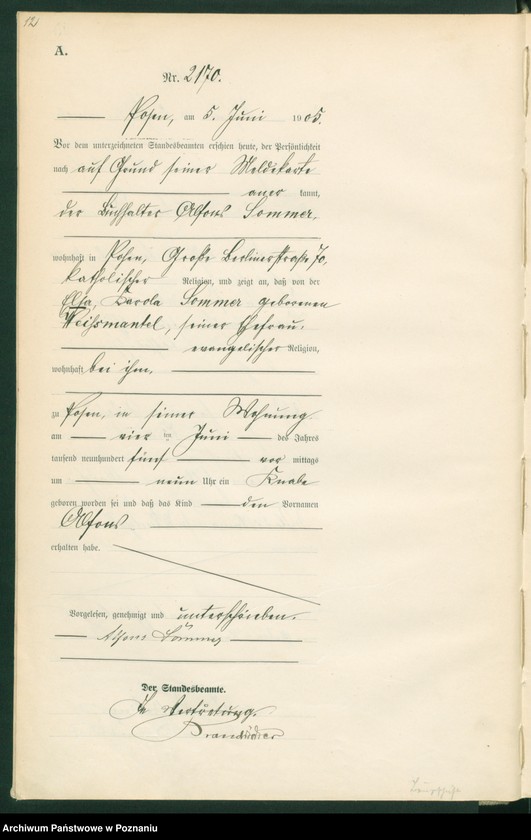 12
A.
Nr. 2170.
Posen, am 5. Juni 1905.
Vor dem unterzeichneten Standesbeamten erschien heute, der Persönlichkeit
nach auf Grund seiner Meldekarte
anerkannt,
der Buchhalter Alfons Sommer,
wohnhaft in Posen, Große Berlinerstraße 70,
katholischer Religion, und zeigt an, daß von der
Elsa, Carola Sommer geborenen
Weissmantel, seiner Ehefrau,
evangelischer Religion,
wohnhaft bei ihm,
zu Posen, in seiner Wohnung
am vier ten Juni des Jahres
tausend neunhundert fünf vor mittags
um neun Uhr ein Knabe
geboren worden sei und daß das Kind den Vornamen
Alfons
erhalten habe.
Vorgelesen, genehmigt und unterschrieben.
Alfons Sommer
Der Standesbeamte.
In Vertretung.
Archiwum Państwowe w Poznaniu